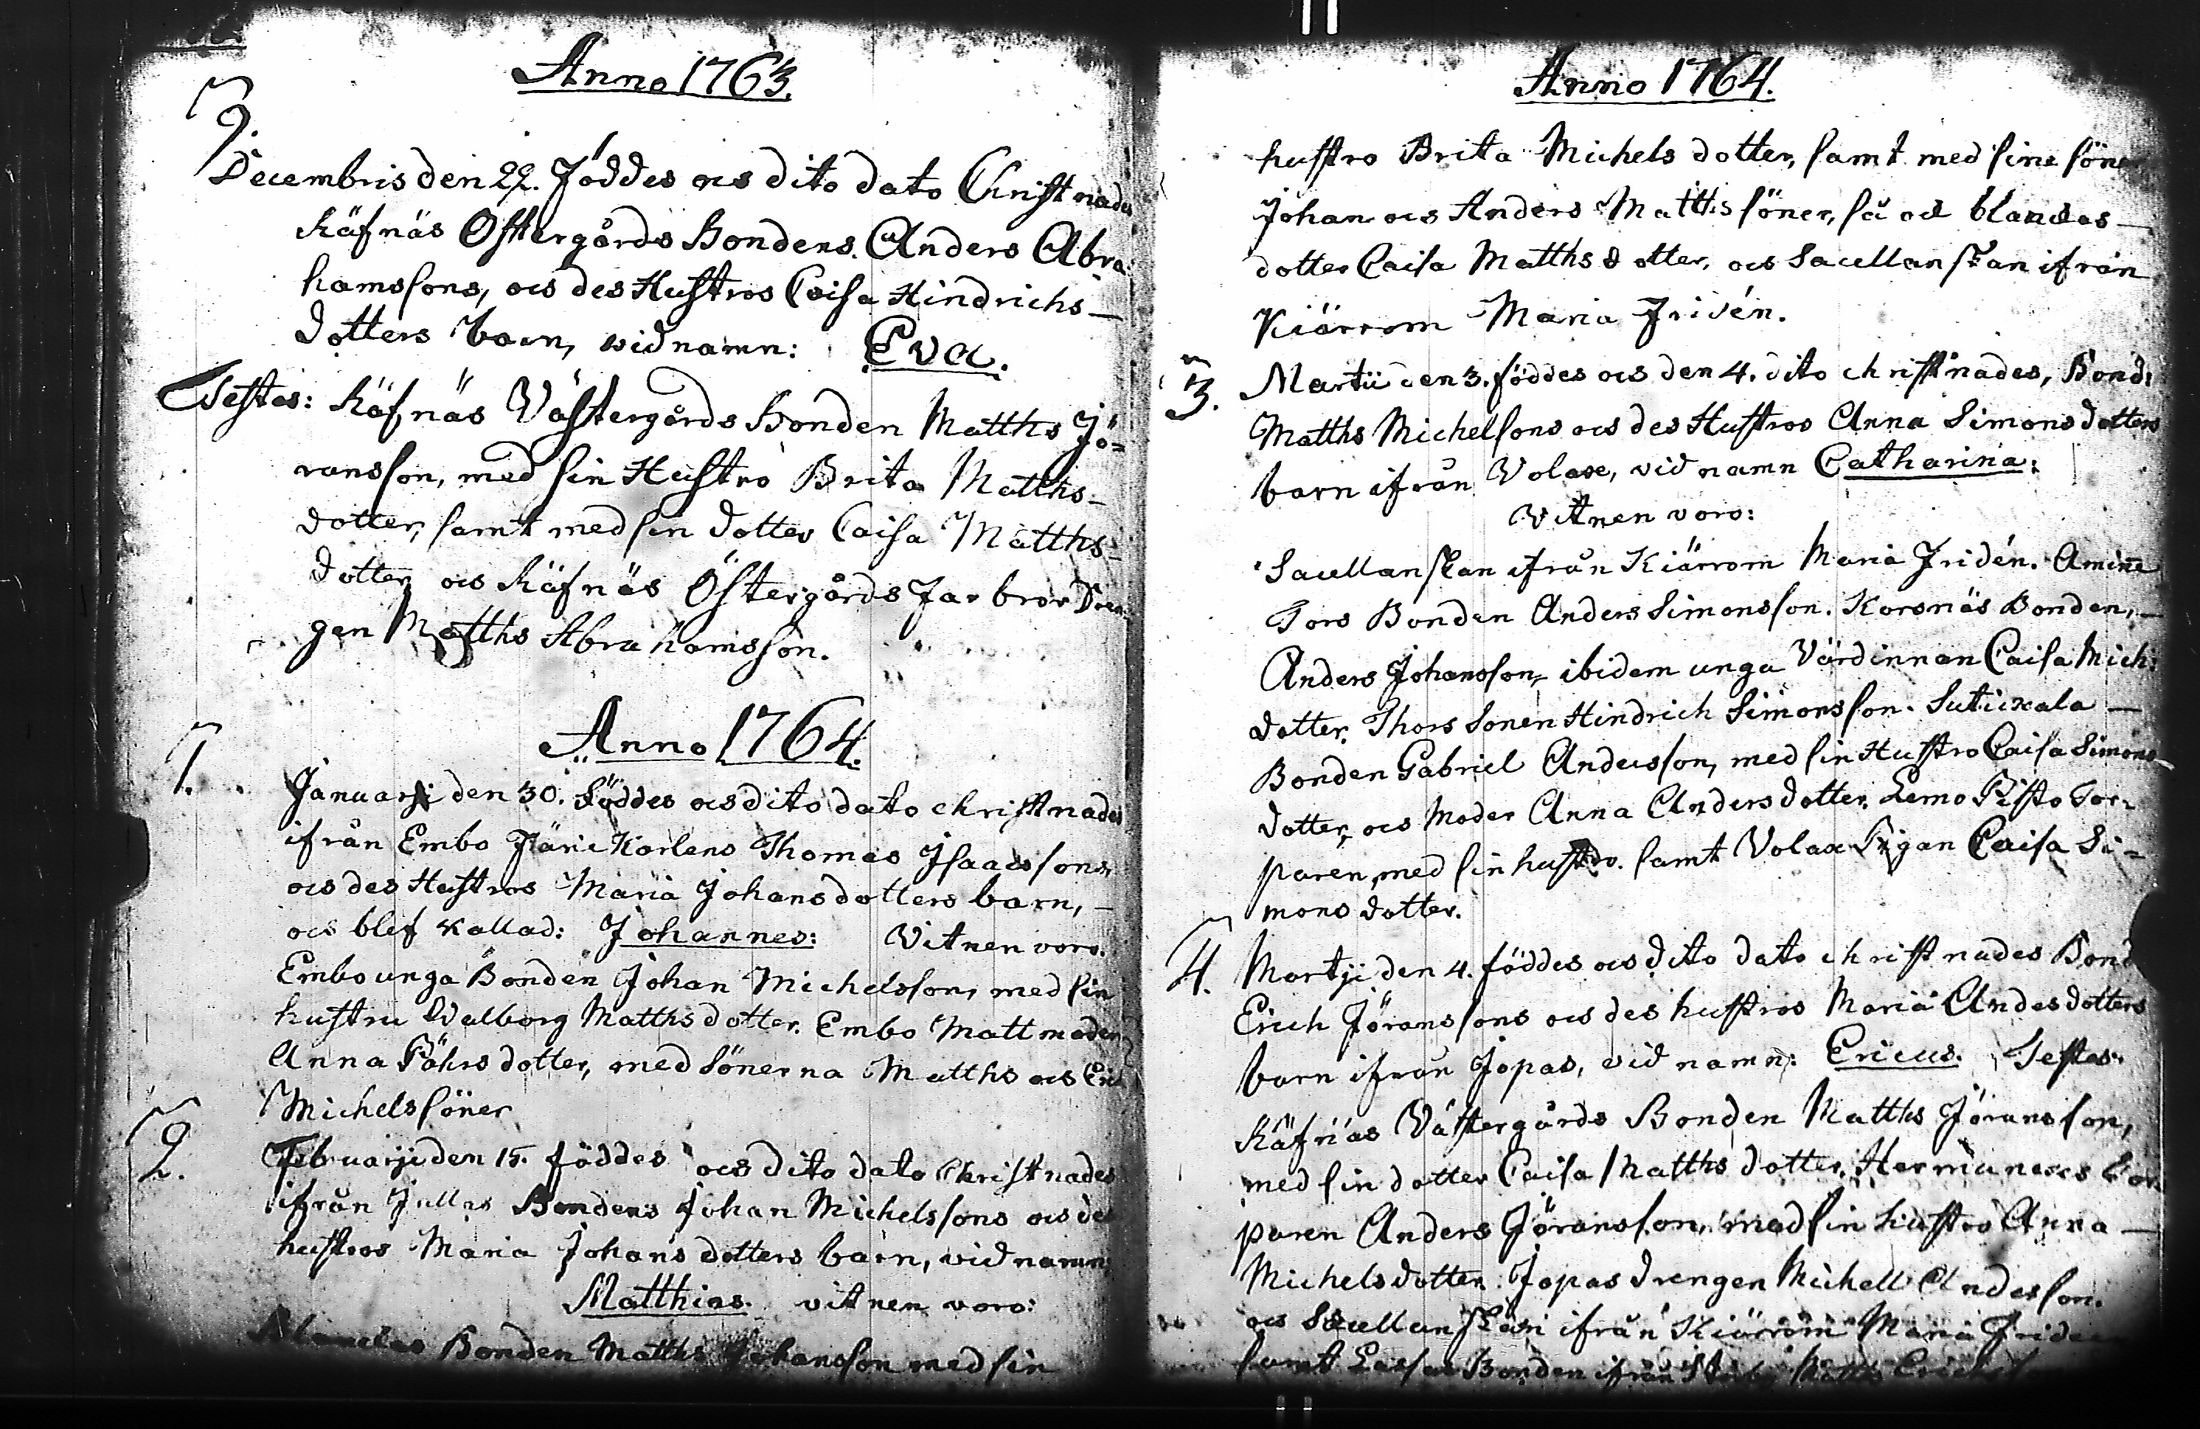 Anno 1763.
9.
Decembris den 22. föddes ocs dito dato Christnades
Käfnäs Östergårds Bondens Anders Abra-
hamssons, ocs des Hustros Caisa Hindrichs-
dotters barn, vid namn: Eva.
Testes: Käfnäs Västergårds Bonden Matths Jö-
ransson, med sin Hustro Brita Matths-
dotter, samt med sin dotter Caisa Matths-
dotter, ocs Käfnäs Östergårds far bror Dren-
gen Matths Abrahamsson.
Anno 1764.
1. Januarji den 30. föddes ocs dito dato christnades
ifrån Embo Karlens Thomas Isaacssons
ocs des Hustros Maria Johansdotters barn,
ocs blef kallad: Johannes: Vitnen voro.
Embo unga Bonden Johan Michelsson, med sin
hustru Valborg Matthsdotter. Embo Matt moder
Anna Påhrsdotter, med Sönerna Matths ocs Eric
Michelssöner
2. Februarji den 15. föddes ocs dito dato Christnades
ifrån Jullas Bondens Johan Michelssons ocs des
hustros Maria Johansdotters barn, vid namn
Matthias. vitnen voro:
Bonden Matths Johansson med sin
Anno 1764.
hustro Brita Michelsdotter, samt med sine söner
Johan ocs Anders Matthssöner, så ocs blandas
dotter Caisa Matthsdotter, ocs Sacellanskan ifrån
Kiärrom Maria Fridén.
3. Martii den 3. föddes ocs den 4. dito christnades, Bond:
Matths Michelsons ocs des Hustros Anna Simonsdotters
barn ifrån Volax, vid namn Catharina:
Vitnen voro:
Sacellanskan ifrån Kiärrom Maria Fridén. Aminne
Tors Bonden Anders Simonsson. Korsnäs Bonden,
Anders Johansson, ibidem unga Värdinnan Caisa Mich:
dotter. Thors Sonen Hindrich Simonsson. Sutickala
Bonden Gabriel Andersson, med sin Hustro Caisa Simons-
dotter, ocs Moder Anna Andersdotter. Lemo Pisto Tor-
paren, med sin hustro. samt Volax Pigan Caisa Si-
monsdotter.
4. Martji den 4. föddes ocs dito dato christnades Bond
Erich Jöranssons ocs des hustros Maria Andesdotters
barn ifrån Jopas, vid namn: Ericus. Testes:
Käfnäs Västergårds Bonden Matths Jöransson,
med sin dotter Caisa Matthsdotter. Hermanexes Tor-
paren Anders Jöransson, med sin hustro Anna
Michelsdotter. Jopas drengen Michell Andesson.
ocs Sacellanskan ifrån Kiärrom Maria Friden
samt Bonden ifrån Matths